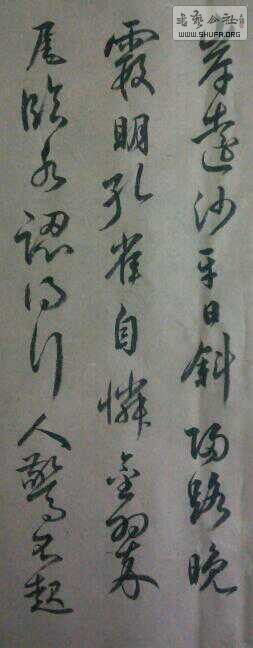 岸遠沙平日斜歸路晚
霞明孔雀自憐金翠
尾臨水認得行人驚不起
书艺公社
WWW.SHUFA.ORG